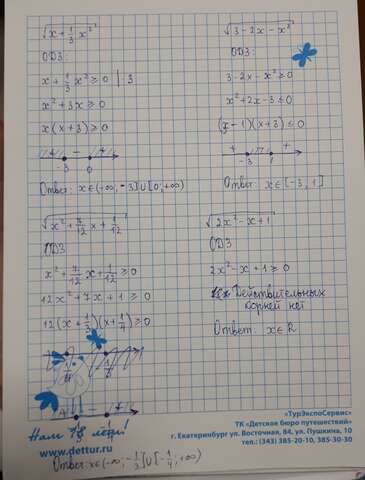 √(x + 1/3 x²)
ОДЗ:
x + 1/3 x² ≥ 0 | 3
x² + 3x ≥ 0
x(x + 3) ≥ 0
+ - +
-3 0
Ответ: x∈(-∞, -3]∪[0, +∞)
√(3 - 2x - x²)
ОДЗ:
3 - 2x - x² ≥ 0
x² + 2x - 3 ≤ 0
(x - 1)(x + 3) ≤ 0
+ - +
-3 1
Ответ: x∈[-3, 1]
√(x² + 7/12 x + 1/12)
ОДЗ
x² + 7/12 x + 1/12 ≥ 0
12x² + 7x + 1 ≥ 0
12(x + 1/3)(x + 1/4) ≥ 0
√(2x² - x + 1)
ОДЗ
2x² - x + 1 ≥ 0
Действительных
корней нет
Ответ: x∈R
Нам 18 лет!
www.dettur.ru
Ответ: x∈(-∞, -1/3]∪[-1/4, +∞)
«ТурЭкспоСервис»
ТК «Детское бюро путешествий»
г. Екатеринбург ул. Восточная, 84, ул. Пушкина, 10
тел.: (343) 385-20-10, 385-30-30